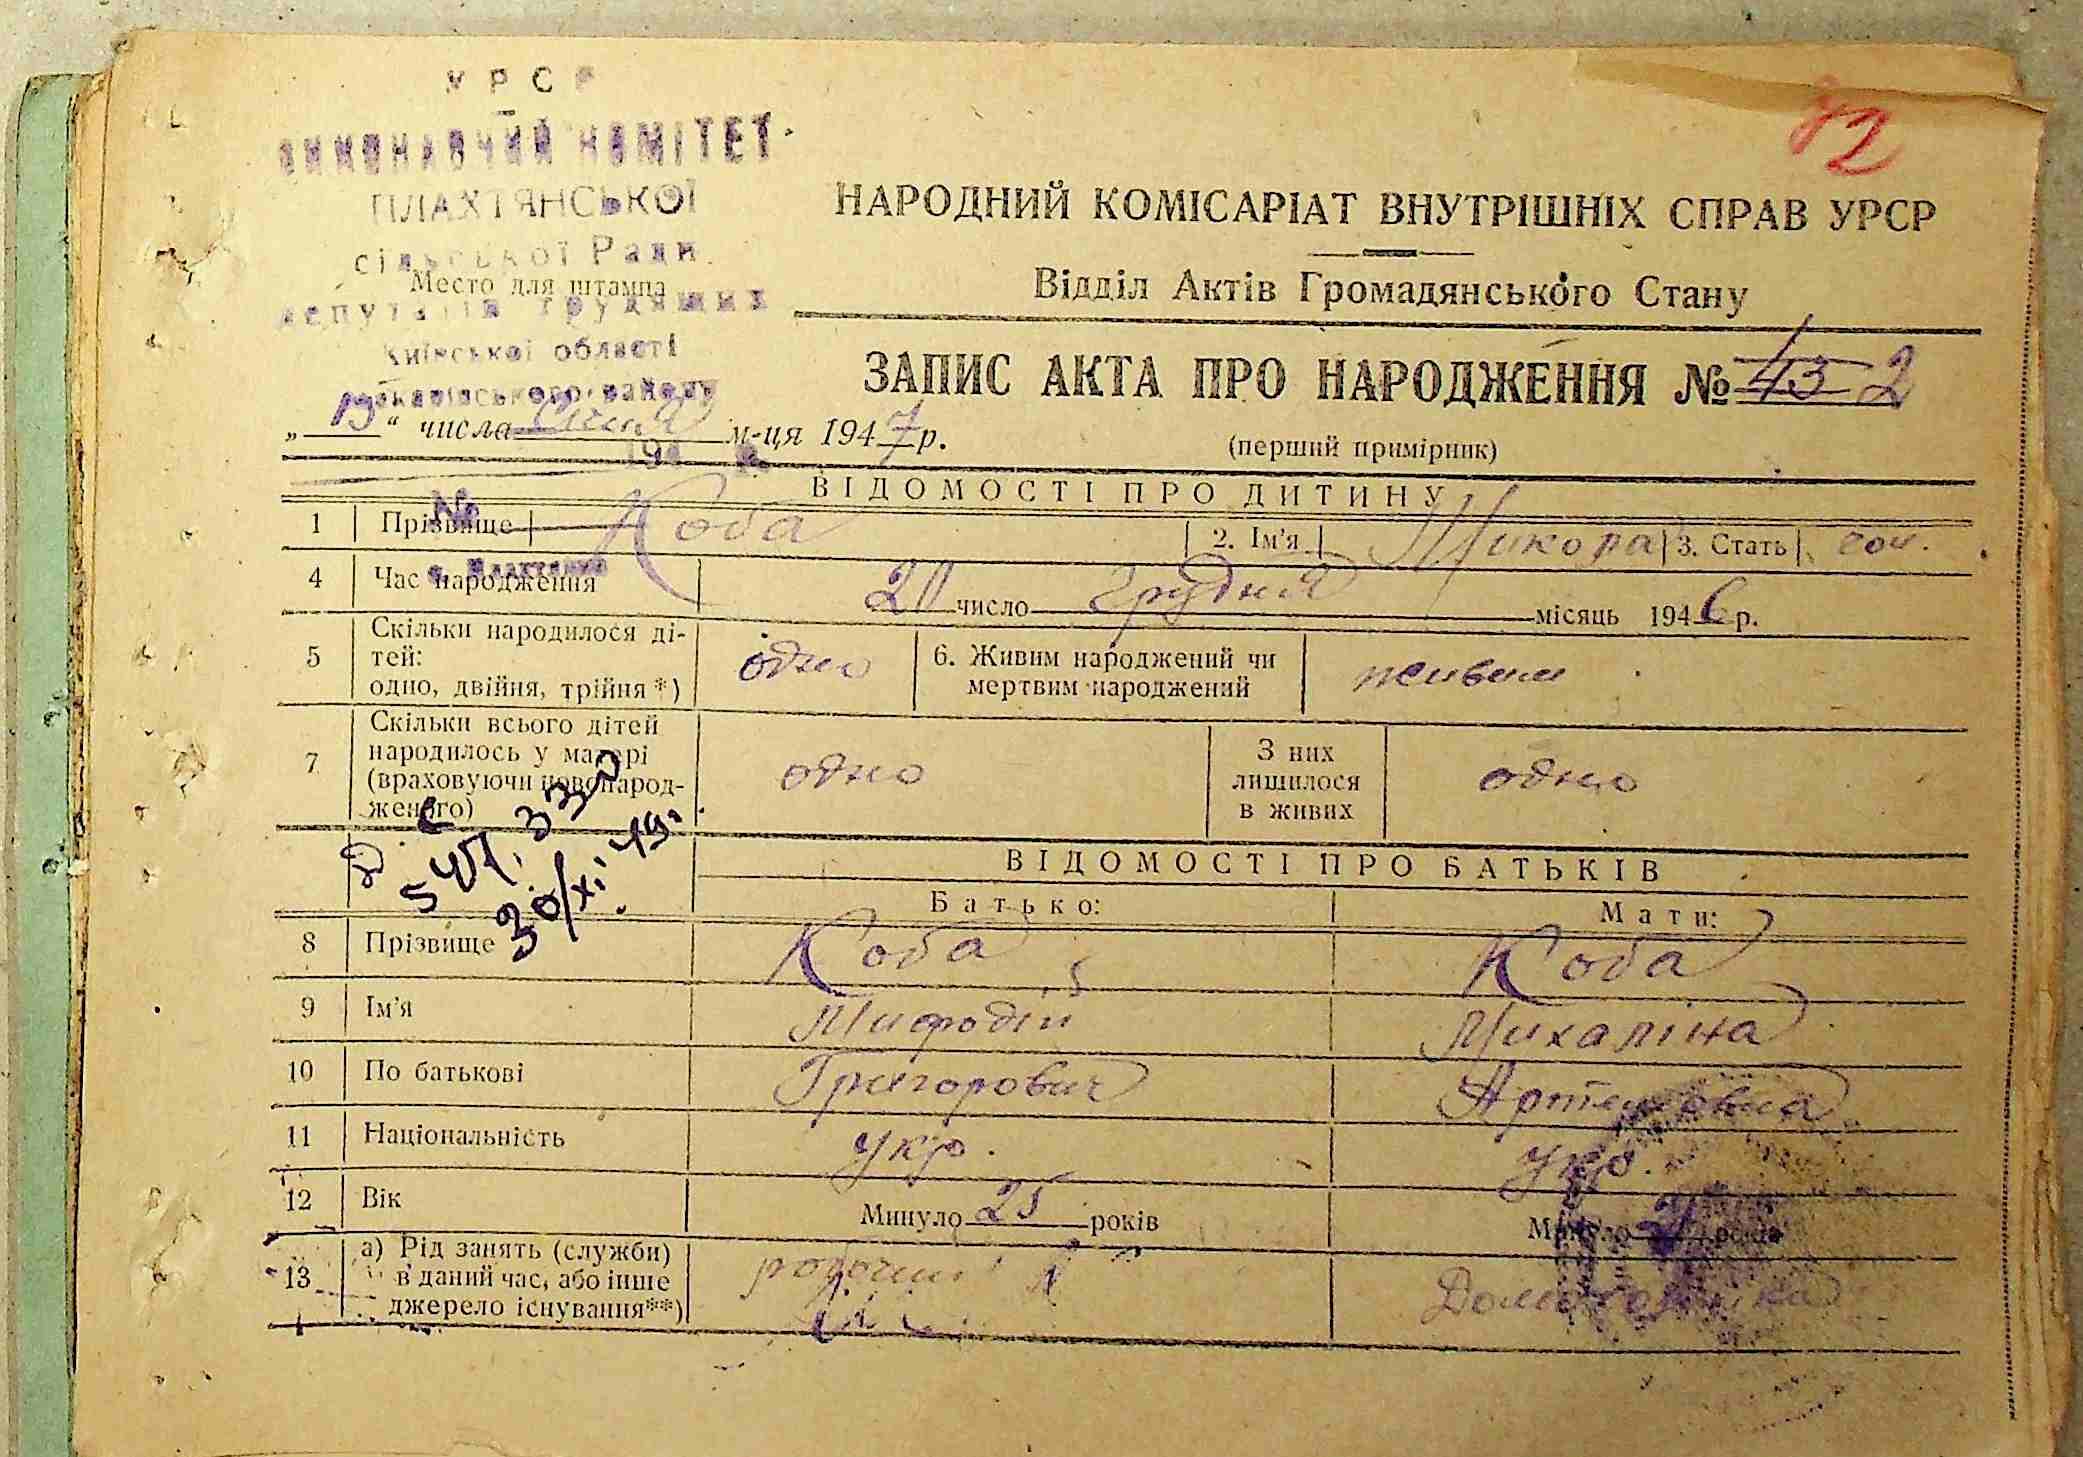 УРСР
ВИКОНАВЧИЙ КОМІТЕТ
ПЛАХТЯНСЬКОЇ
сільської Ради
Место для штампа
депутатів трудящих
Київської області
Макарівського району
194 р.
№
с. Плахтянка
72
НАРОДНИЙ КОМІСАРІАТ ВНУТРІШНІХ СПРАВ УРСР
Відділ Актів Громадянського Стану
ЗАПИС АКТА ПРО НАРОДЖЕННЯ № 43 2
„13“ числа Січня м-ця 1947 р.
(перший примірник)
ВІДОМОСТІ ПРО ДИТИНУ
1 Прізвище Коба 2. Ім'я Микола 3. Стать чол.
4 Час народження 20 число Грудня місяць 1946 р.
5 Скільки народилося ді-
тей:
одно, двійня, трійня*) одно 6. Живим народжений чи
мертвим народжений живим
7 Скільки всього дітей
народилось у матері
(враховуючи новонарод-
женого) одно З них
лишилося
в живих одно
30/XI 49.
ВІДОМОСТІ ПРО БАТЬКІВ
Батько: Мати:
8 Прізвище Коба Коба
9 Ім'я Мифодій Михаліна
10 По батькові Григорович Артемовна
11 Національність укр. укр.
12 Вік Минуло 25 років Минуло років
13 а) Рід занять (служби)
в даний час, або інше
джерело існування**) робочий Домогозяйка